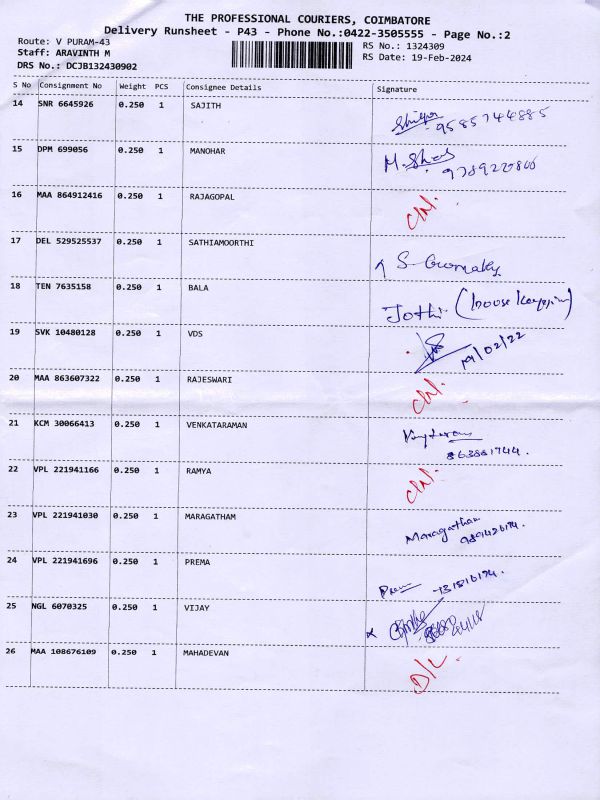 THE PROFESSIONAL COURIERS, COIMBATORE
Delivery Runsheet - P43 - Phone No.:0422-3505555 - Page No.:2
Route: V PURAM-43
RS No.: 1324309
Staff: ARAVINTH M
RS Date: 19-Feb-2024
DRS No.: DCJB132430902
S No Consignment No Weight PCS Consignee Details Signature
14 SNR 6645926 0.250 1 SAJITH
9585744885
15 DPM 699056 0.250 1 MANOHAR
16 MAA 864912416 0.250 1 RAJAGOPAL
17 DEL 529525537 0.250 1 SATHIAMOORTHI
18 TEN 7635158 0.250 1 BALA
Jothi
19 SVK 10480128 0.250 1 VDS
19/02/22
20 MAA 863607322 0.250 1 RAJESWARI
21 KCM 30066413 0.250 1 VENKATARAMAN
22 VPL 221941166 0.250 1 RAMYA
23 VPL 221941030 0.250 1 MARAGATHAM
Maragatham
24 VPL 221941696 0.250 1 PREMA
25 NGL 6070325 0.250 1 VIJAY
26 MAA 108676109 0.250 1 MAHADEVAN
D/L